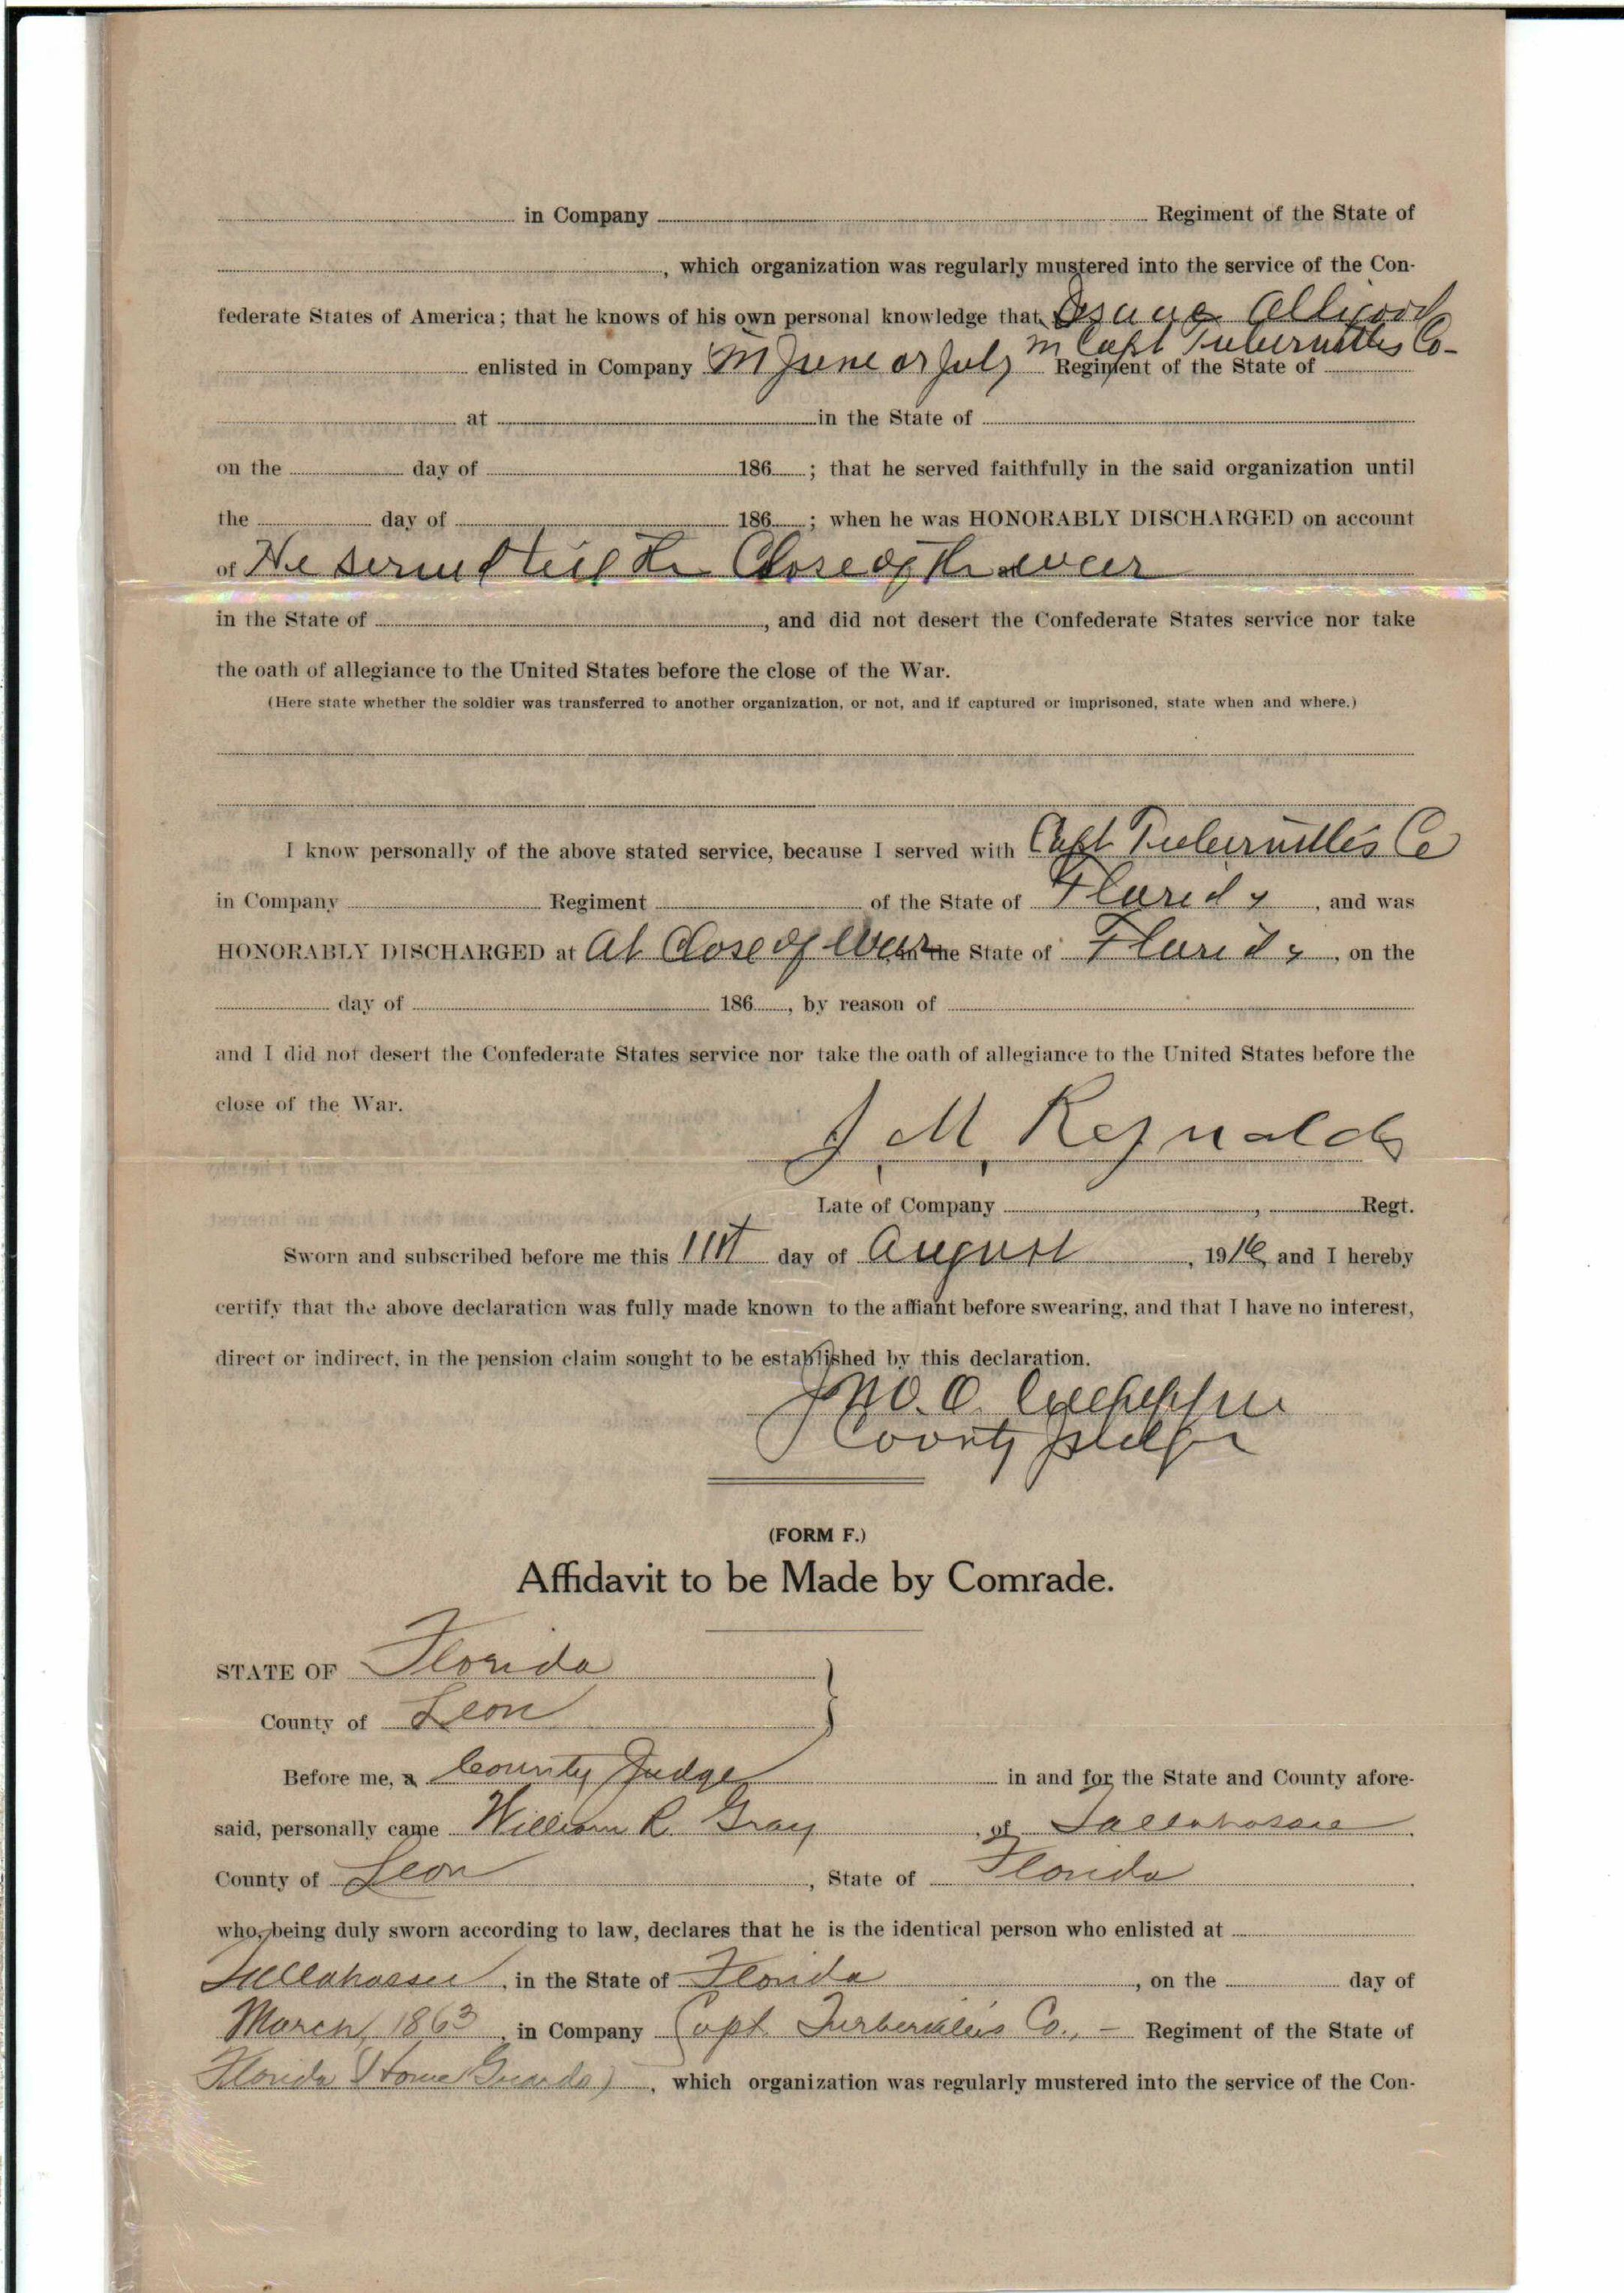 in Company Regiment of the State of
, which organization was regularly mustered into the service of the Con-
federate States of America; that he knows of his own personal knowledge that Alligood
in Capt Tubervilles Co-
enlisted in Company in June or July Regiment of the State of
at in the State of
on the day of 186 ; that he served faithfully in the said organization until
the day of 186 ; when he was HONORABLY DISCHARGED on account
of He served till the Close of the war
in the State of , and did not desert the Confederate States service nor take
the oath of allegiance to the United States before the close of the War.
(Here state whether the soldier was transferred to another organization, or not, and if captured or imprisoned, state when and where.)
I know personally of the above stated service, because I served with Capt Tubervilles Co
in Company Regiment of the State of Florida , and was
HONORABLY DISCHARGED at At Close of War in the State of Florida , on the
day of 186 , by reason of
and I did not desert the Confederate States service nor take the oath of allegiance to the United States before the
close of the War.
J. M. Reynolds
Late of Company , Regt.
Sworn and subscribed before me this 11st day of August , 1916, and I hereby
certify that the above declaration was fully made known to the affiant before swearing, and that I have no interest,
direct or indirect, in the pension claim sought to be established by this declaration.
Jno. O. Culpepper
County Judge
(FORM F.)
Affidavit to be Made by Comrade.
STATE OF Florida
County of Leon
Before me, a County Judge in and for the State and County afore-
said, personally came William R. Gray , of Tallahassee .
County of Leon , State of Florida .
who, being duly sworn according to law, declares that he is the identical person who enlisted at
Tallahassee , in the State of Florida , on the day of
March, 1863 , in Company Capt. Turbervilles Co., - Regiment of the State of
Florida (Home Guards) , which organization was regularly mustered into the service of the Con-